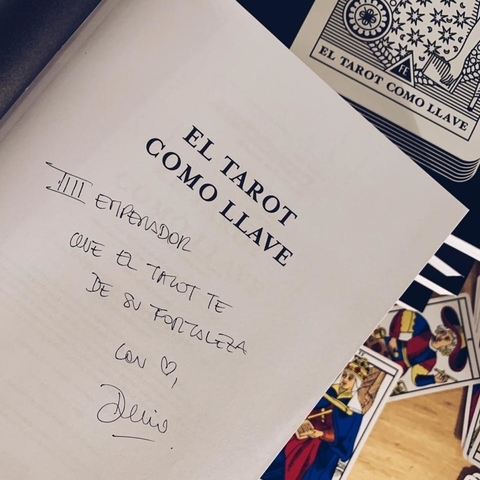 EL TAROT
COMO LLAVE
IIII EMPERADOR
QUE EL TAROT TE
DE SU FORTALEZA
CON ♡,
EL TAROT COMO LLAVE